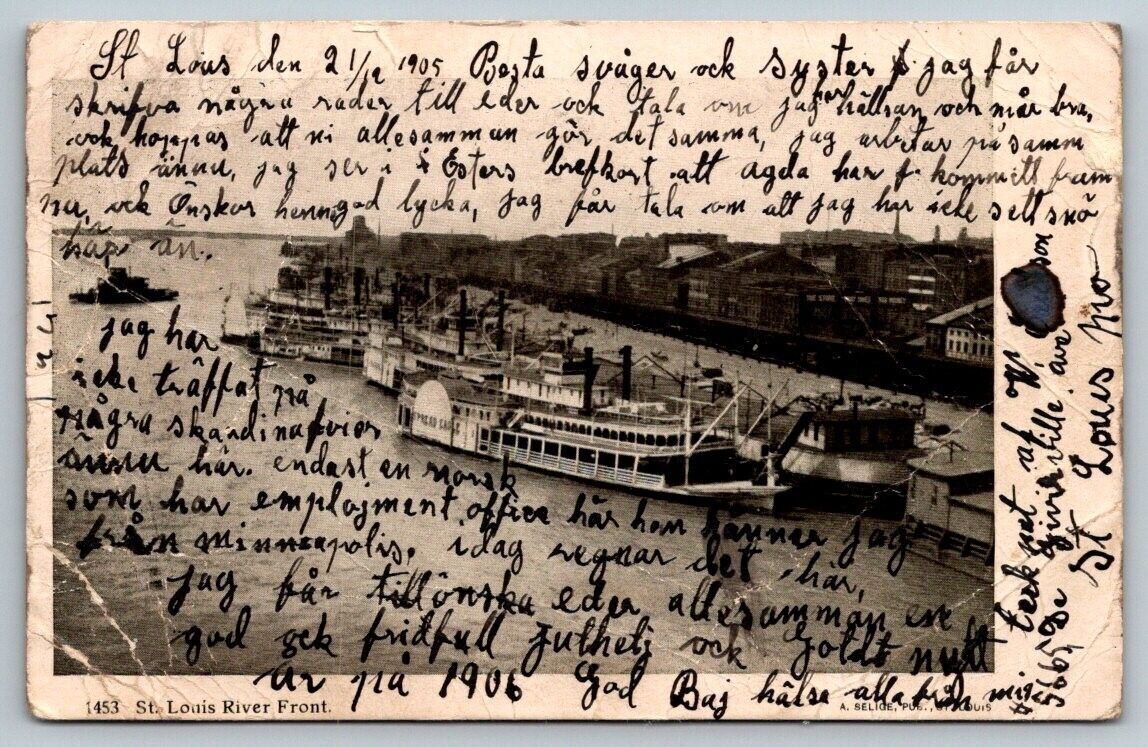 St Lous den 21/12 1905 Besta svåger ock syster jag får
skrifva några rader till eder ock tala om jag har hällsan och mår bra,
ock hoppas att ni allesamman gör det samma, jag arbetar på samm
plats ännu, jag ser i Esters brefkort att agda har kommitt fram
nu, ock Önskar henn god lycka, jag får tala om att jag har icke sett snö
här än.
jag har
icke träffat på
några skandinavier
ännu här. endast en norsk
som har employment office här hon känner jag
från minneapolis, idag regnar det här,
jag får tillönska eder allesamman en
god ock fridfull julhelj ock Godt nytt
år på 1906 God Baj hälsa alla från mig
tecknat af
5665 De Giverville ave
St Lous Mo
SPREAD EAGLE
1453 St. Louis River Front.
A. SELIGE, PUB., ST. LOUIS